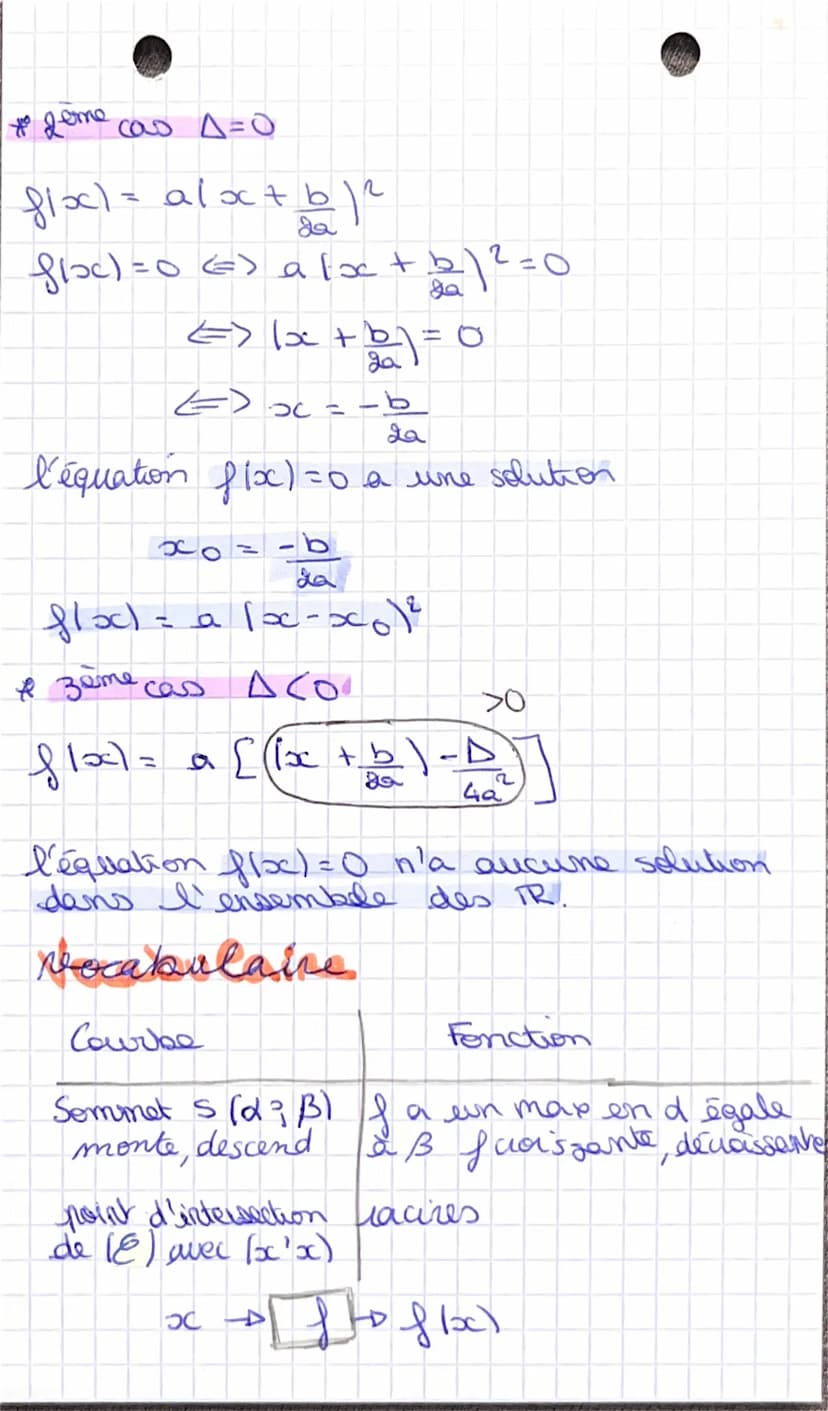 * 2ème cas Δ=0
f(x) = a(x + b/2a)²
f(x)=0 <=> a(x + b/2a)²=0
<=> (x + b/2a)= 0
<=> x = -b/2a
l'équation f(x)=0 a une solution
x0 = -b/2a
f(x) = a (x-x0)²
* 3ème cas Δ<0
>0
f(x) = a [(x + b/2a) - Δ/4a²]
l'équation f(x)=0 n'a aucune solution
dans l'ensemble des IR.
Vocabulaire
Courbe | Fonction
Sommet S (α; β) | f a un max en α égale
monte, descend | à β f croissante, décroissante
point d'intersection | racines
de (C) avec (x'x)
x → f → f(x)